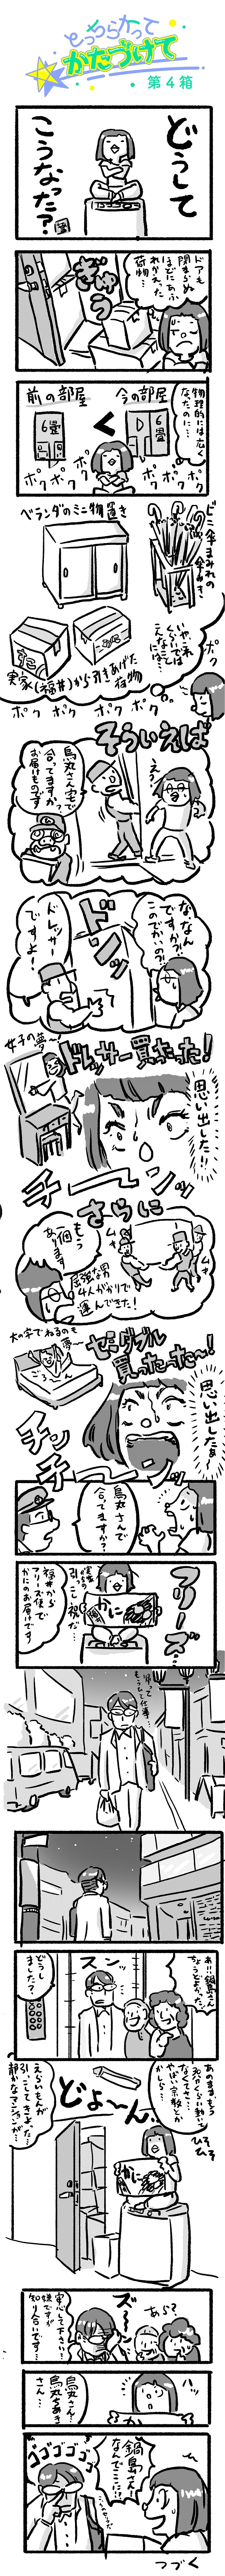 とっちらかって
かたづけて
第4箱
どうして
こうなった?
ドアも
閉まらぬ
ほどにあふ
れかえった
荷物…
ぎゅう
物理的には広く
なったのに…
今の部屋
6畳
前の部屋
6畳
く
ポク ポク
ポク ポク
ベランダのミニ物置き
ビニ傘まみれの
傘おき
実家(福井)から引きあげた
荷物
いや、それ
くらいでは
こんなことに
は…
ポク
ポク ポク ポク ポク
そういえば
えっ
烏丸さん宅で
合ってますか?
お届けものです
な、なん
ですか?!
このでかいの?!
ドンッ
ドレッサー
ですよ!
ドレッサー買ったった!
女子の夢〜
思い出した!!
チーンッ
さらに
もう
一個
あります
屈強な男
4人がかりで
運んできた!
セミダブル
買ったった〜!
大の字でねるのも
夢〜
ごろーん
思い出したぁー
チンチーンッ
烏丸さんで
合ってますか?
フリーズ…
かに
引っこし祝だ…
福井から
フリーズ便で
かにのお届けです
帰って
もういっちょ仕事…
あ!!鍋島さん
ちょうどよかった!
スン…
どう
しました?
あのまま、もう
ひそ
ひそ
えらいもんが
引っこしてきよった…
静かなマンションが…
どょ〜ん
かに
あら?
ズーン
安心して下さい!
嫌ですが
知り合いです…
ハッ
烏丸さん…
烏丸ちあき
さん…
鍋島さん
なんでここに!?
ゴゴゴゴゴ
つづく